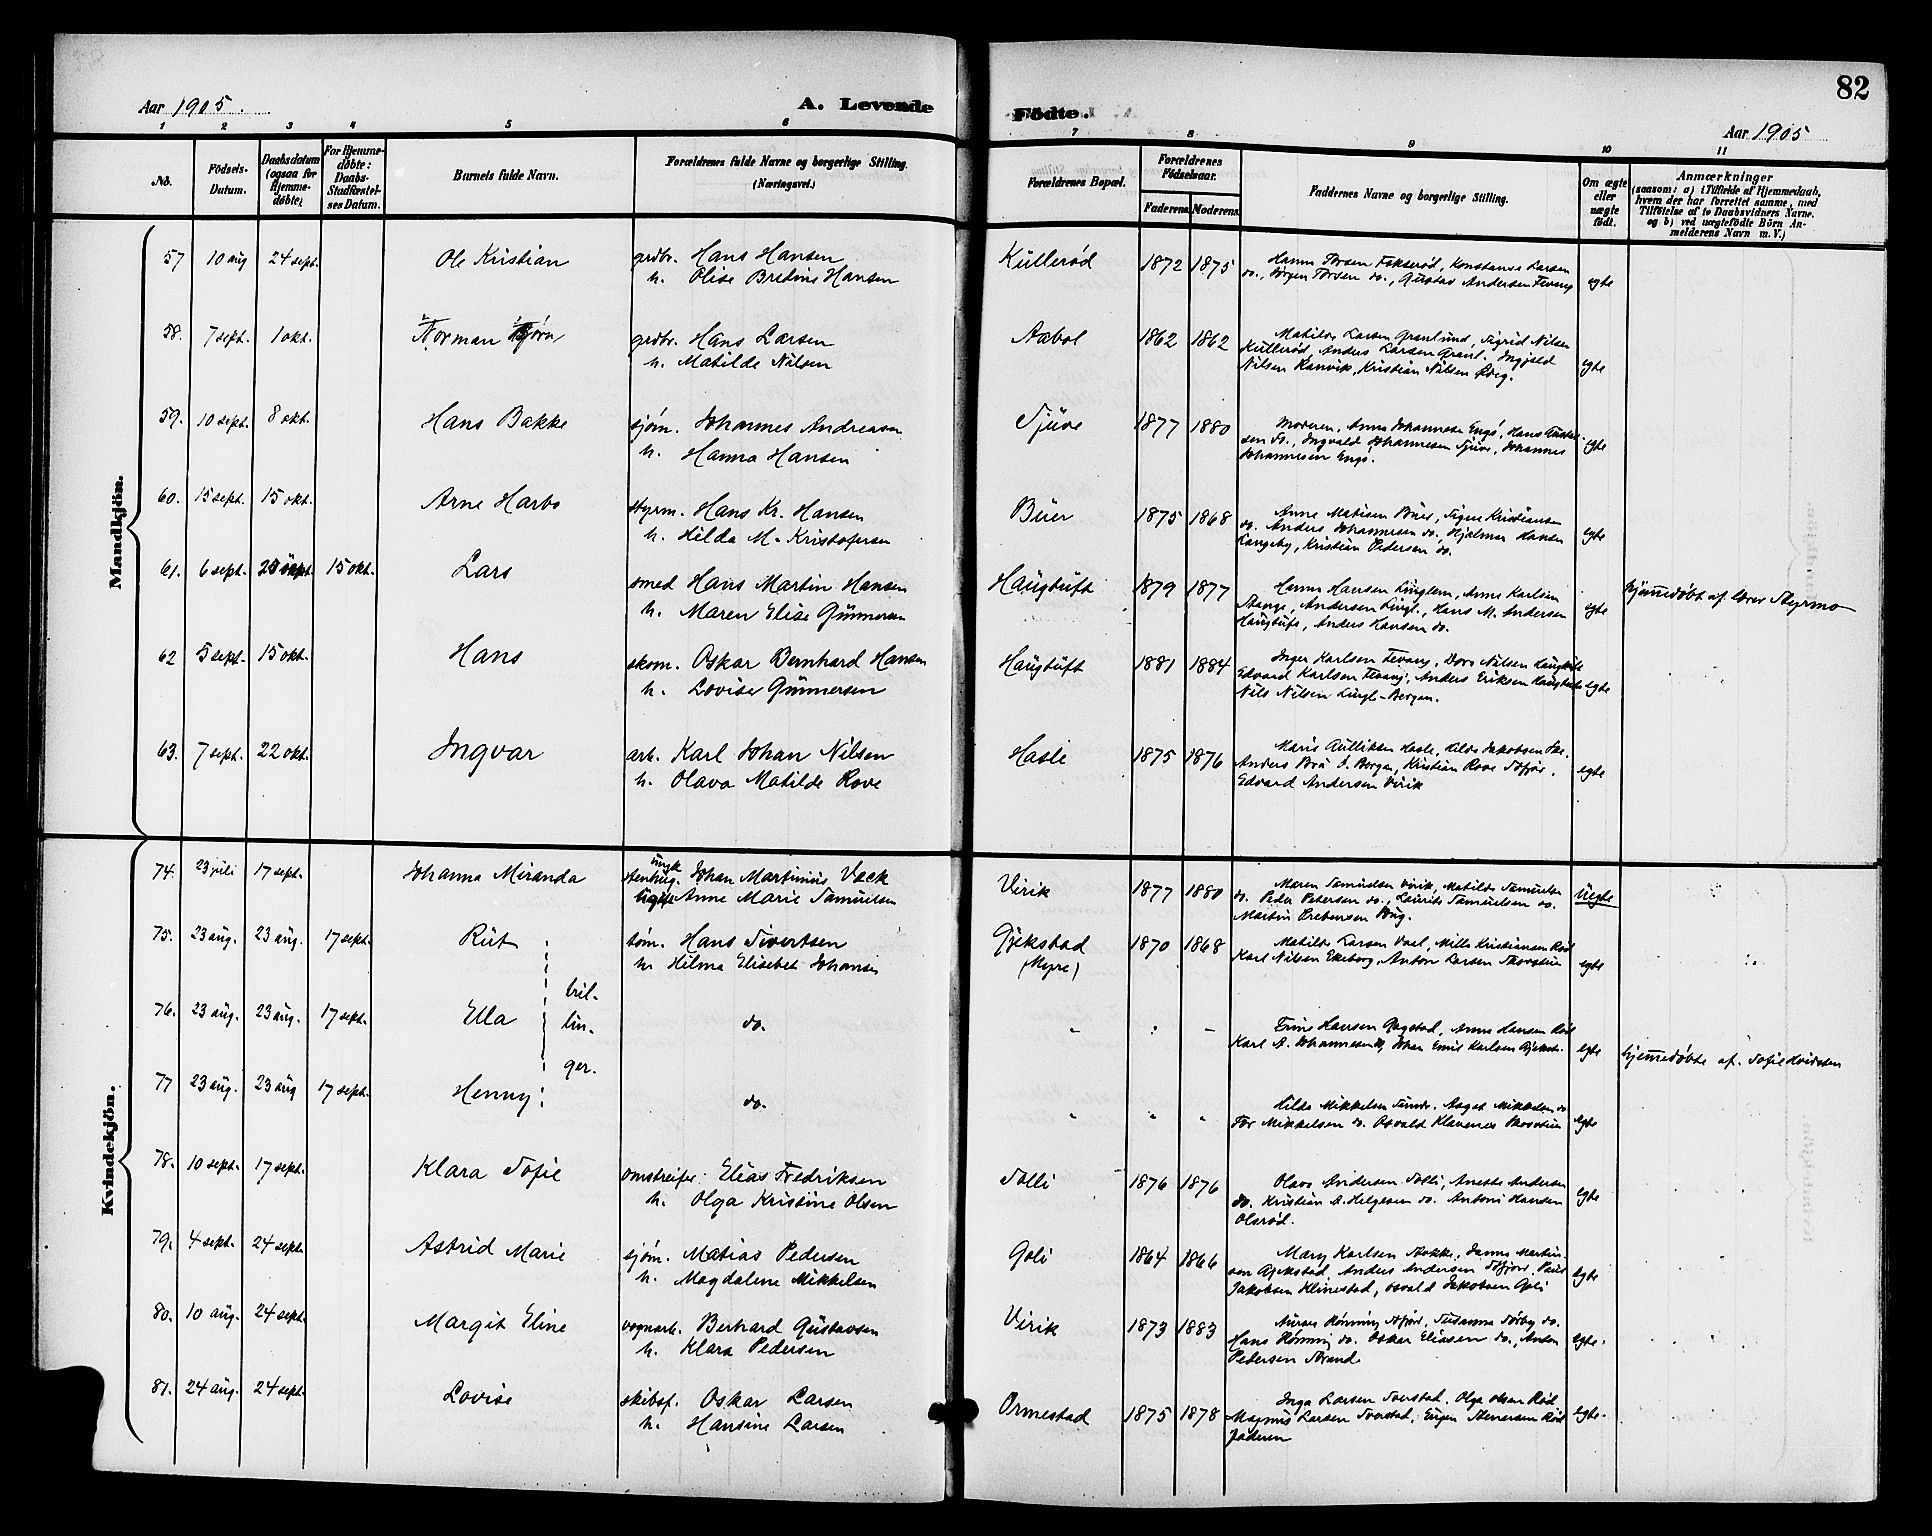 82
Aar 1905.
A. Levende
Födte.
Aar 1905
1 2 3 4 5 6 7 8 9 10 11
No.
Födsels-
Datum.
Daabsdatum
(ogsaa for
Hjemme-
döbte)
For Hjemme-
döbte:
Daabs-
Stadfæstel-
ses Datum.
Barnets fulde Navn.
Forældrenes fulde Navne og borgerlige Stilling.
(Næringsvei.)
Forældrenes Bopæl.
Forældrenes
Födselsaar.
Faderens. Moderens.
Faddernes Navne og borgerlige Stilling.
Om ægte
eller
uægte
födt.
Anmærkninger
(saasom: a) i Tilfælde af Hjemmedaab,
hvem der har forrettet samme, med
Tilföielse af to Daabsvidners Navne.
og b) ved uægtefödte Börn An-
melderens Navn m. V.)
Mandkjön.
57 10 aug 24 sept. Ole Kristian grdbr. Hans Hansen
h. Olise Bretine Hansen
Kullerød 1872 1875 Hanna Torsen Fokserød, Konstanse Larsen
do., Jørgen Torsen do., Gustav Andersen Fevang egte
58. 7 sept. 1 okt. Norman Bjørn grdbr. Hans Larsen
h. Matilde Nilsen
Aabol 1862 1862 Matilde Larsen Granlund, Sigrid Nilsen
Kullerød, Anders Larsen Granl. Ingjald
Nilsen Ranvik, Kristian Nilsen egte
59. 10 sept. 8 okt. Hans Bakke sjøm. Johannes Andreasen
h. Hanna Hansen
Tjuve 1877 1880 Moderen, Anna Johannesen Engø, Hans
sen do., Ingvald Johannesen Tjuve, Johannes
Johannesen Engø. egte
60. 15 sept. 15 okt. Arne Harbo styrm. Hans Kr. Hansen
h. Hilda M. Kristofersen
Buer 1875 1868 Anne Matisen Buer, Signe Kristiansen
do. Anders Johannesen do., Hjalmar Hansen
Langeby, Kristian Pedersen do. egte
61. 6 sept. 15 okt. Lars smed Hans Martin Hansen
h. Maren Elise Gunnersen
Haugtuft 1879 1877 Hanna Hansen Lingelem, Anna Karlsen
Stange, Andersen Lingl., Hans M. Andersen
Haugtuft, Anders Hansen do. egte hjemmedøbt af lærer Styrmo
62 5 sept. 15 okt. Hans skom. Oskar Bernhard Hansen
h. Lovise Gunnersen
Haugtuft 1881 1884 Inger Karlsen Fevang, Dora Nilsen Haugtuft
Edvard Karlsen Fevang, Anders Eriksen Haugtuft
Nils Nilsen Lingl-Bergan. egte
63. 7 sept. 22 okt. Ingvar arb. Karl Johan Nilsen
h. Olava Matilde Rove
Hasle 1875 1876 Marie Gulliksen Hasle, Hilda Jakobsen
Anders Bergan, Kristian Rove
Edvard Andersen Virik egte
Kvindekjön.
74. 23 juli 17 sept. Johanna Miranda ungk.
stenhug. Johan Martinius Vack
Anne Marie Samuelsen
Virik 1877 1880 Maren Samuelsen Virik, Matilde Samuelsen
do. Peder Petersen do., Laurits Samuelsen do.
Martin Prebensen Bug. Uegte
75. 23 aug. 23 aug. 17 sept. Rut tøm. Hans Sivertsen
h. Hilma Elisebet Johansen
Gjekstad
(Myre)
1870 1868 Matilde Larsen Vael, Milla Kristiansen Rød
Karl Nilsen Ekeberg, Anton Larsen egte
tril-
76. 23 aug. 23 aug. 17 sept. Ella lin- do.
" " " Trine Hansen Gogstad, Anna Hansen Rød
Karl A. Johannesen, Johan Emil Karlsen Gjekst. egte hjemmedøbte af Sofie Hvidsten
ger.
77 23 aug. 23 aug 17 sept. Henny do.
" " " Hilda Mikkelsen Sunde, Aagot Mikkelsen do
Tor Mikkelsen do. Osvald Klavenes egte
78. 10 sept. 17 sept. Klara Sofie omstreifer. Elias Fredriksen
h. Olga Kristine Olsen
Solli 1876 1876 Olava Andersen Solli, Anette Andersen
do. Kristian A. Helgesen do. Antoni Hansen
Olsrød. egte
79. 4 sept. 24 sept. Astrid Marie sjøm. Matias Pedersen
h. Magdalene Mikkelsen
Goli 1864 1866 Mary Karlsen Janna Martin-
sen Gjekstad, Anders Andersen Paul
Jakobsen Klinestad, Osvald Jakobsen Goli egte
80. 10 aug. 24 sept. Margit Eline vognarb. Berhard Gustavsen
h. Klara Pedersen
Virik 1873 1883 Rønning Susanna Sørby do.
Hans Rønning do. Oskar Eliasen do., Anton
Pedersen Strand. egte.
81. 24 aug. 24 sept. Lovise skibsf. Oskar Larsen
h. Hansine Larsen
Ormestad 1875 1878 Inga Larsen Sverstad, Olga Olsen Rød
Magnus Larsen Sverstad, Eugen Rød
Faderen egte.